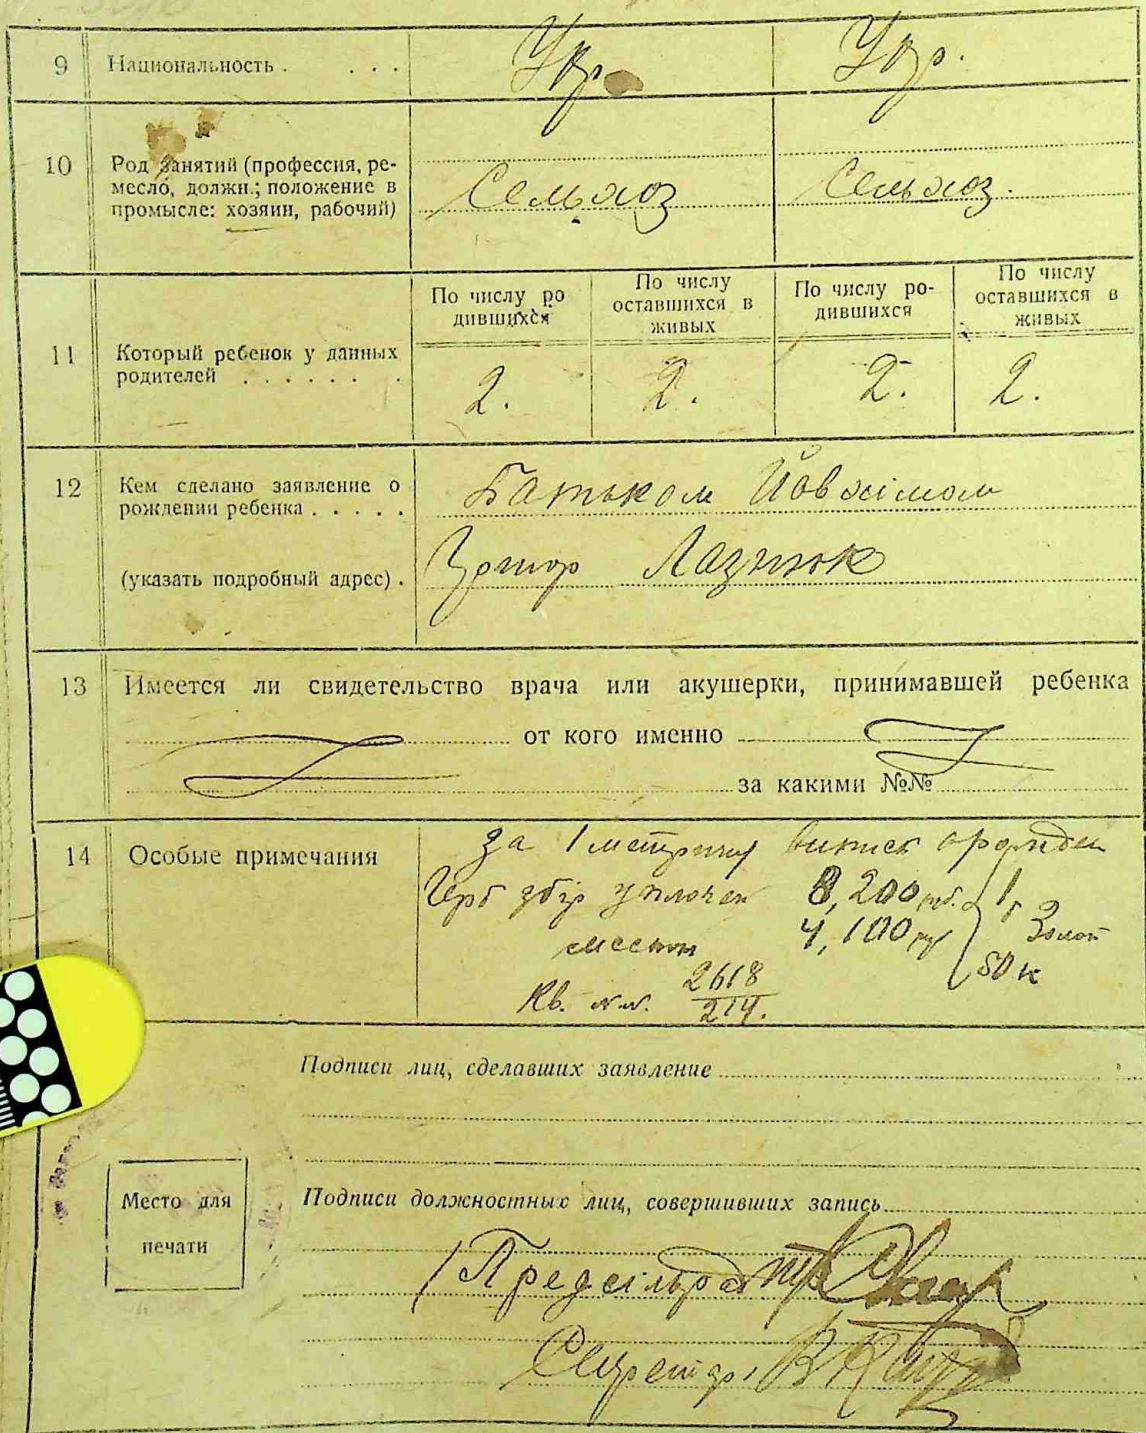 9 Национальность . . . . Укр. Укр.
10 Род занятий (профессия, ре-
месло, должн.; положение в
промысле: хозяин, рабочий)
Сельхоз Сельхоз.
11 Который ребенок у данных
родителей . . . . . . .
По числу ро
дившихся
По числу
оставшихся в
живых
По числу ро-
дившихся
По числу
оставшихся в
живых
2. 2. 2. 2.
12 Кем сделано заявление о
рождении ребенка . . . . .
Батьком Йовхімом
(указать подробный адрес) .
Лазнюк
13 Имеется ли свидетельство врача или акушерки, принимавшей ребенка
от кого именно
за какими №№
14 Особые примечания
за 1 метричну
Герб збір уплочен 8,200 руб. 1 г
4,100 руб Золот
50 к
Кв. №№. 2618
214.
Подписи лиц, сделавших заявление
Место для
печати
Подписи должностных лиц, совершивших запись
Предсільради
Секретарь